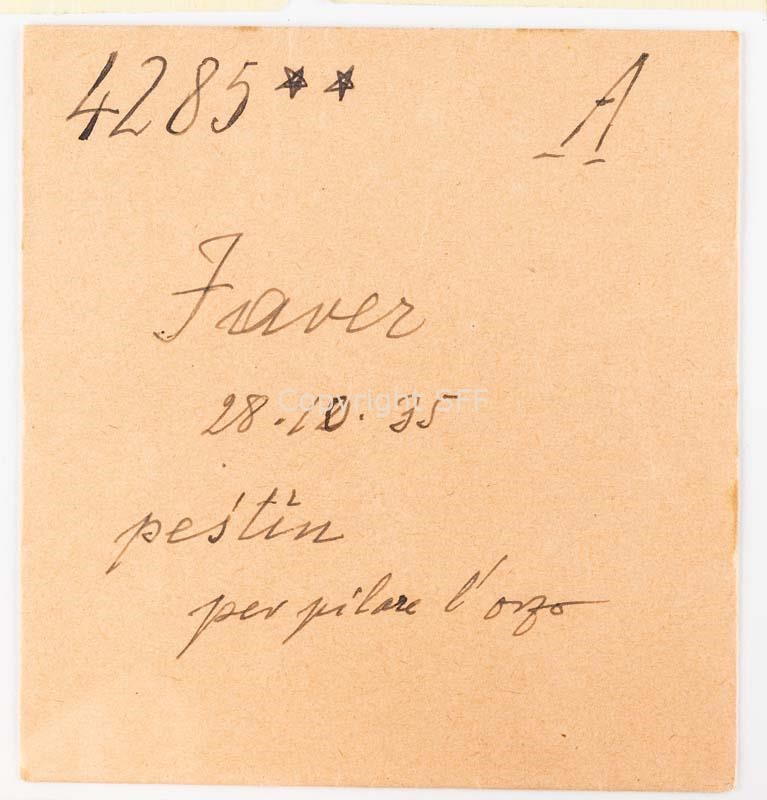 4285** A
Faver
28.10.35
peśtin
per pilare l'orzo
Copyright SFF